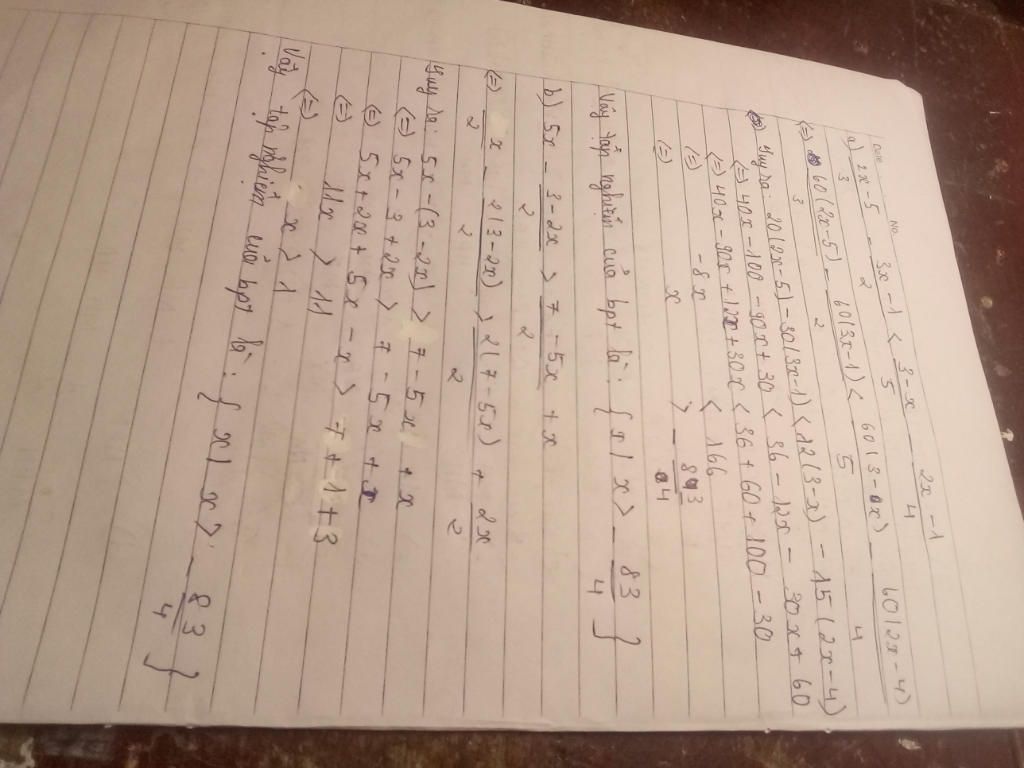 Date No.
a) 2x-5/3 - 3x-1/2 < 3-x/5 - 2x-1/4
(=) 60(2x-5)/3 - 60(3x-1)/2 < 60(3-x)/5 - 60(2x-4)/4
Suy ra: 20(2x-5) - 30(3x-1) < 12(3-x) - 15(2x-4)
(=) 40x - 100 - 90x + 30 < 36 - 12x - 30x + 60
(=) 40x - 90x + 12x + 30x < 36 + 60 + 100 - 30
(=) -8x < 166
(=) x > - 83/4
Vậy tập nghiệm của bpt là: { x | x > - 83/4 }
b) 5x - 3-2x/2 > 7-5x/2 + x
(=) x/2 - 2(3-2x)/2 > 2(7-5x)/2 + 2x/2
Suy ra: 5x-(3-2x) > 7-5x + x
(=) 5x - 3 + 2x > 7 - 5x + x
(=) 5x + 2x + 5x - x > 7 + 1 + 3
(=) 11x > 11
(=) x > 1
Vậy tập nghiệm của bpt là: { x | x > - 83/4 }